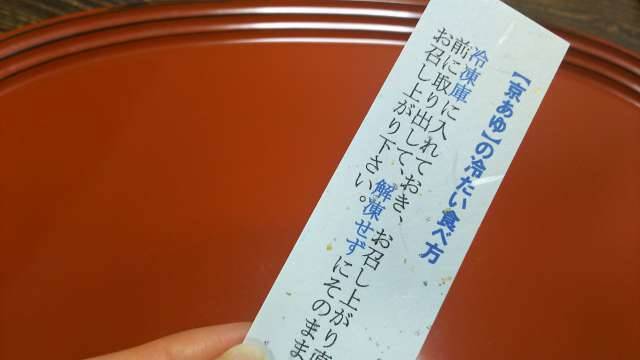 【京あゆ】の冷たい食べ方
冷凍庫に入れておき、お召し上がり直
前に取り出して、解凍せずにそのまま
お召し上がり下さい。